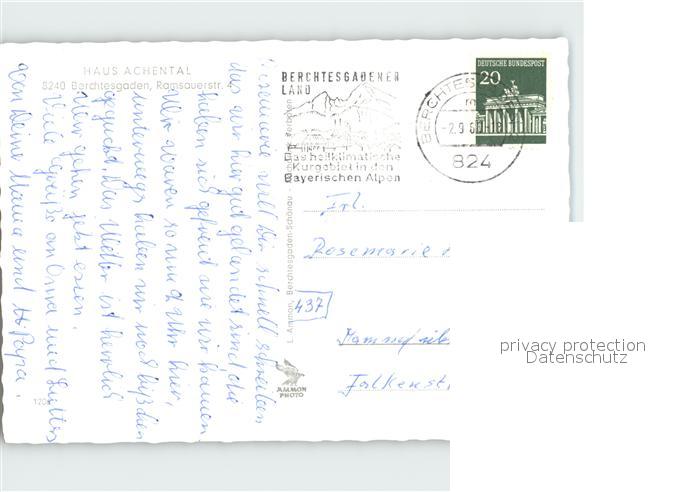 HAUS ACHENTAL
8240 Berchtesgaden, Ramsauerstr. 4
will Dir schnell schreiben
das wir hier gut gelandet sind die
haben sich gefreut wie wir kamen
Wir waren so um Uhr hier,
unterwegs haben wir noch
Das Wetter ist herrlich
Wir gehen jetzt essen.
Viele Grüße an Oma und
von Deine Mama und Papa.
120
BERCHTESGADENER
LAND
Das heilklimatische
Kurgebiet in den
Bayerischen Alpen
BERCHTES
-2.9.
824
DEUTSCHE BUNDESPOST
20
L. Ammon, Berchtesgaden-Schönau
AMMON
PHOTO
Frl.
Rosemarie
437
Falkenst
privacy protection
Datenschutz